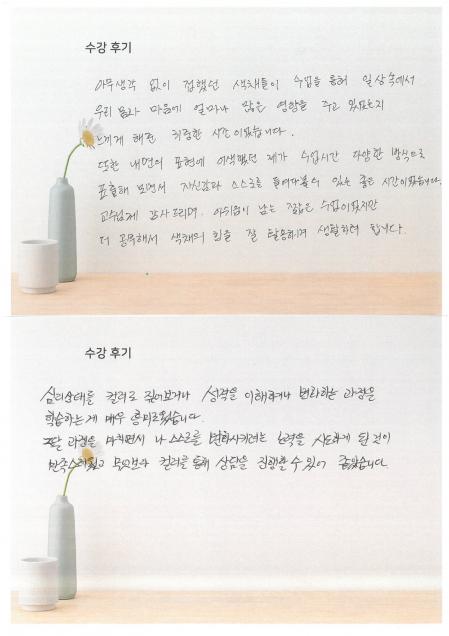 수강 후기
아무생각 없이 접했던 색채들이 수업을 통해 일상속에서
우리 몸과 마음에 얼마나 많은 영향을 주고 있었는지
느끼게 해준 귀중한 시간이었습니다.
또한 내면의 표현에 어색했던 제가 수업시간 다양한 방식으로
표출해 보면서 자신감과 스스로를 들여다볼 수 있는 좋은 시간이었습니다.
교수님께 감사드리며, 아쉬움이 남는 짧은 수업이었지만
더 공부해서 색채의 힘을 잘 활용하며 생활하려 합니다.
수강 후기
심리상태를 컬러로 짚어보거나 성격을 이해하거나 변화하는 과정을
학습하는게 매우 흥미로웠습니다.
과정을 마치면서 나 스스로를 변화시키려는 노력을 시도하게 된 것이
만족스러웠고 컬러를 통해 상담을 진행할 수 있어 좋았습니다.